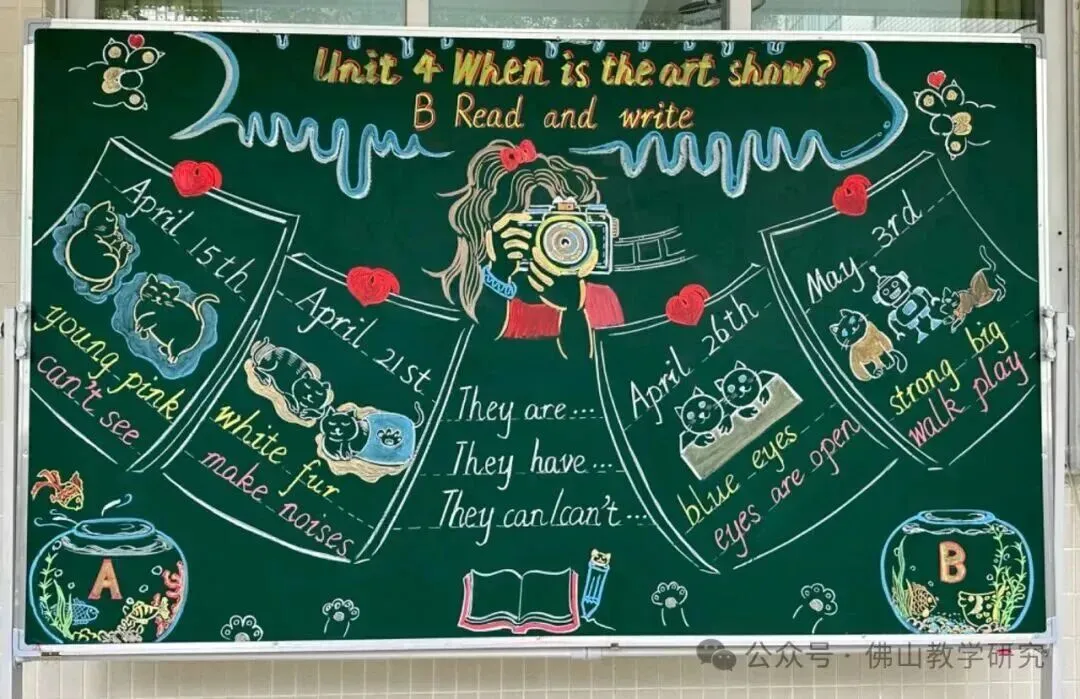 Unit 4 When is the art show?
B Read and write
April 15th
young pink
can't see
April 21st
white fur
make noises
They are...
They have...
They can/can't...
April 26th
blue eyes
eyes are open
May 3rd
strong big
walk play
A
B
公众号·佛山教学研究